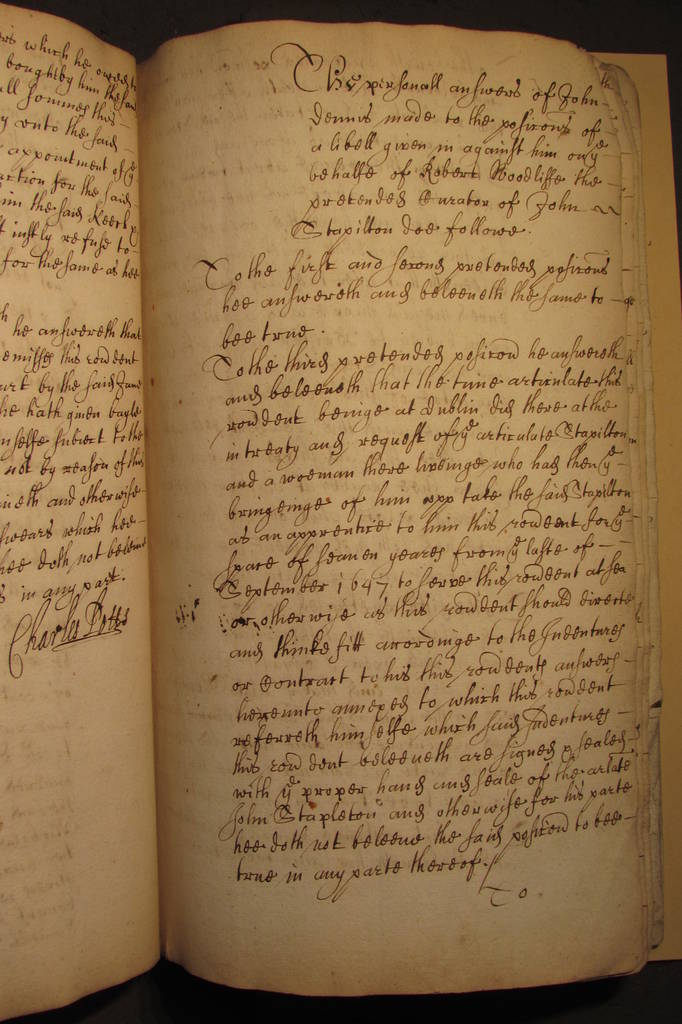 ers which he
bought by him the said
all sommes this
y unto the said
appointment of ye
action for the said
him the said Keech
iustly refuse to
for the same as hee
he answereth that
emisses this rondent
urt by the said Jane
he hath given bayle
mselfe subiect to the
not by reason of this
ineth and otherwise
swears which hee
hee doth not beleeve
in any part.
Charles Potts
The personall answers of John
th
dennis made to the posicons of
a libell given in against him on ye
behalfe of Robert Woodliffe the
pretended Curator of John
Stapilton doe followe.
To the first and second pretended posicons
hee answereth and beleeveth the same to
bee true.
To the third pretended posicon he answereth
and beleeveth that the time articulate this
rondent beinge at dublin did there at the
intreaty and request of ye articulate Stapilton
and a woeman there liveinge who had then ye
bringeinge of him upp take the said Stapilton
as an apprentice to him this rondent for ye
space of seaven yeares from ye laste of
September 1647 to serve this rondent at sea
or otherwise as this rondent should directe
and thinke fitt accordinge to the Indentures
or Contract to his this rondents answers
hereunto annexed to which this rondent
referreth himselfe which said Indentures
this rondent beleeveth are signed & sealed
with ye proper hand and seale of the arlate
John Stapleton and otherwise for his parte
hee doth not beleeve the said posicon to bee
true in any parte thereof./
To